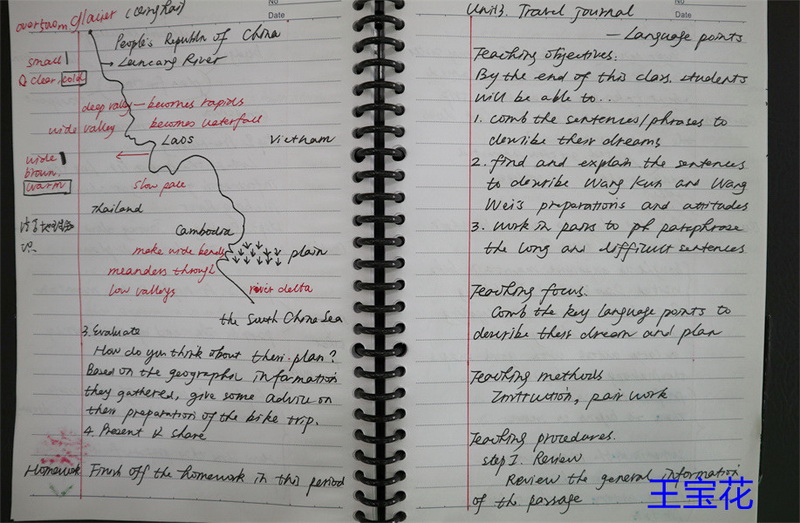 glacier (Qinghai)
People's Republic of China
Lancang River
small
clear, cold
deep valley — becomes rapids
wide valley becomes waterfall
Laos Vietnam
wide
brown.
warm
slow pace
Thailand
Cambodia
make wide bends plain
meanders through
low valleys river delta
the South China Sea
3. Evaluate
How do you think about their plan?
Based on the geographic information
they gathered, give some advice on
their preparation of the bike trip.
4. Present & share
Homework Finish off the homework in this period
No
Date
No
Date
Unit 3. Travel journal
— Language points
Teaching objectives:
By the end of this class, students
will be able to..
1. comb the sentences/phrases to
describe their dreams
2. find and explain the sentences
to describe Wang Kun and Wang
Wei's preparations and attitudes
3. work in pairs to paraphrase
the long and difficult sentences
Teaching focus.
Comb the key language points to
describe their dream and plan
Teaching methods
Instruction, pair work
Teaching procedures.
step I. Review
Review the general information
of the passage
王宝花